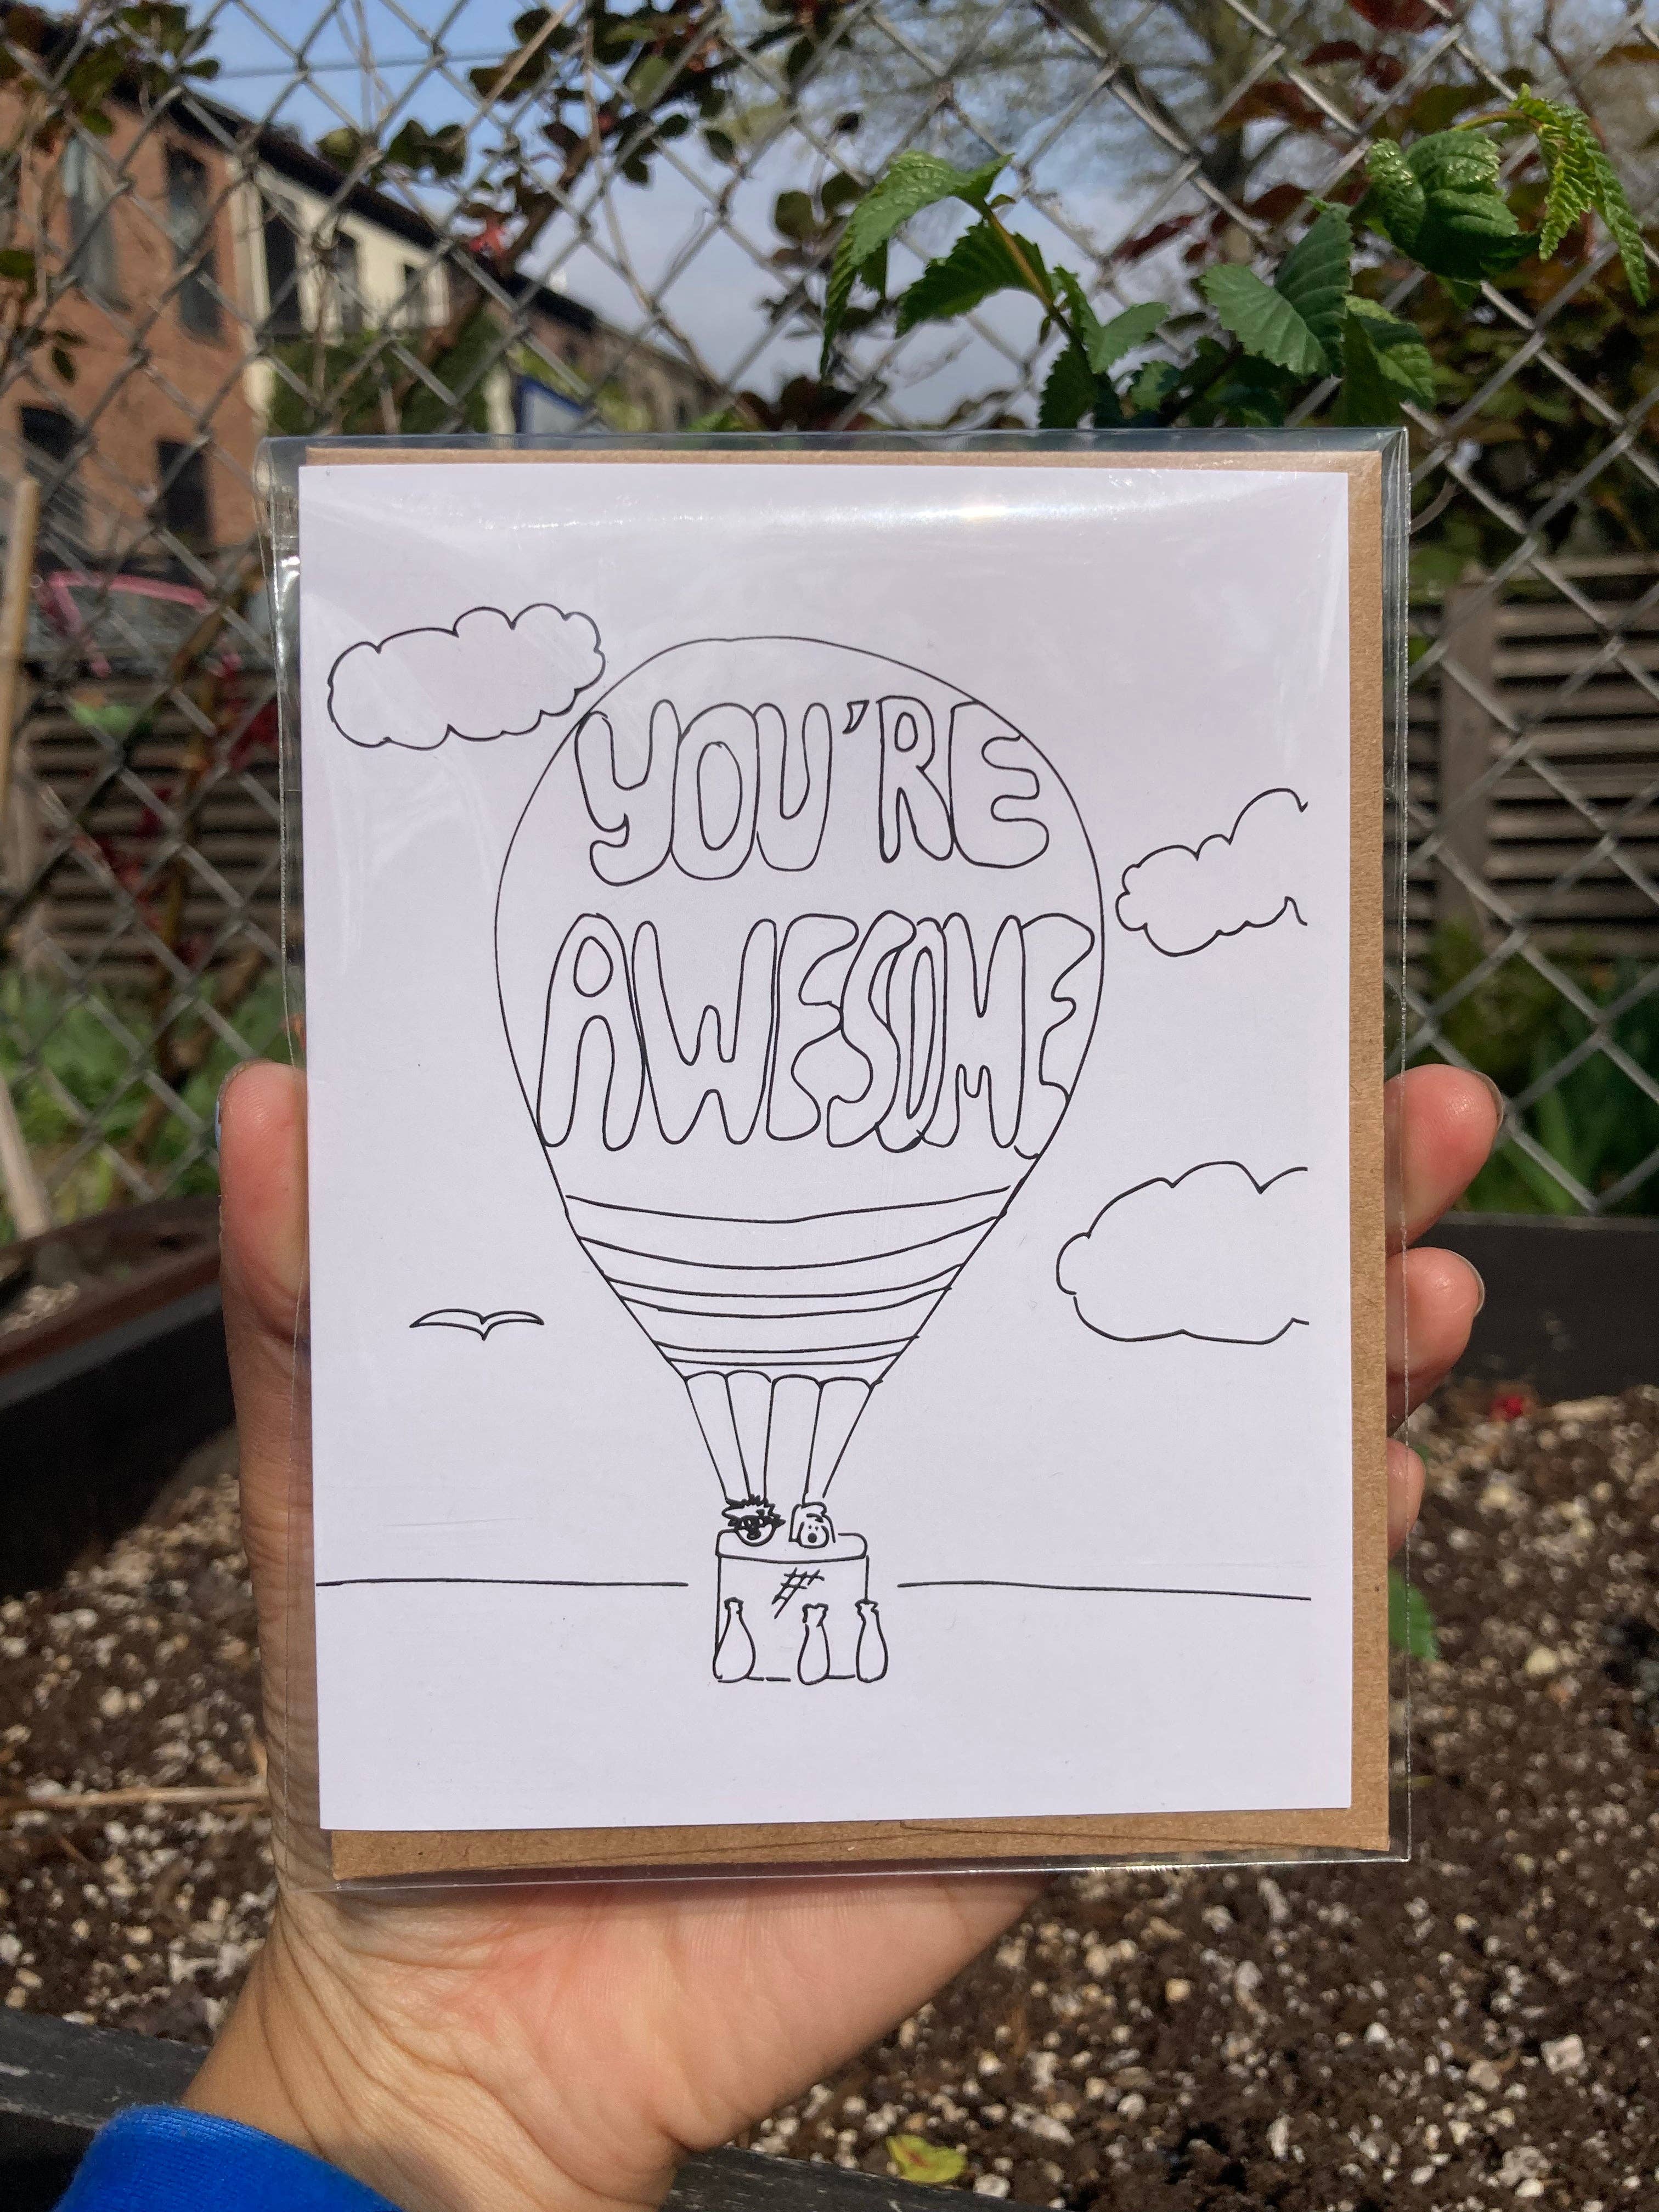 YOU'RE
AWESOME